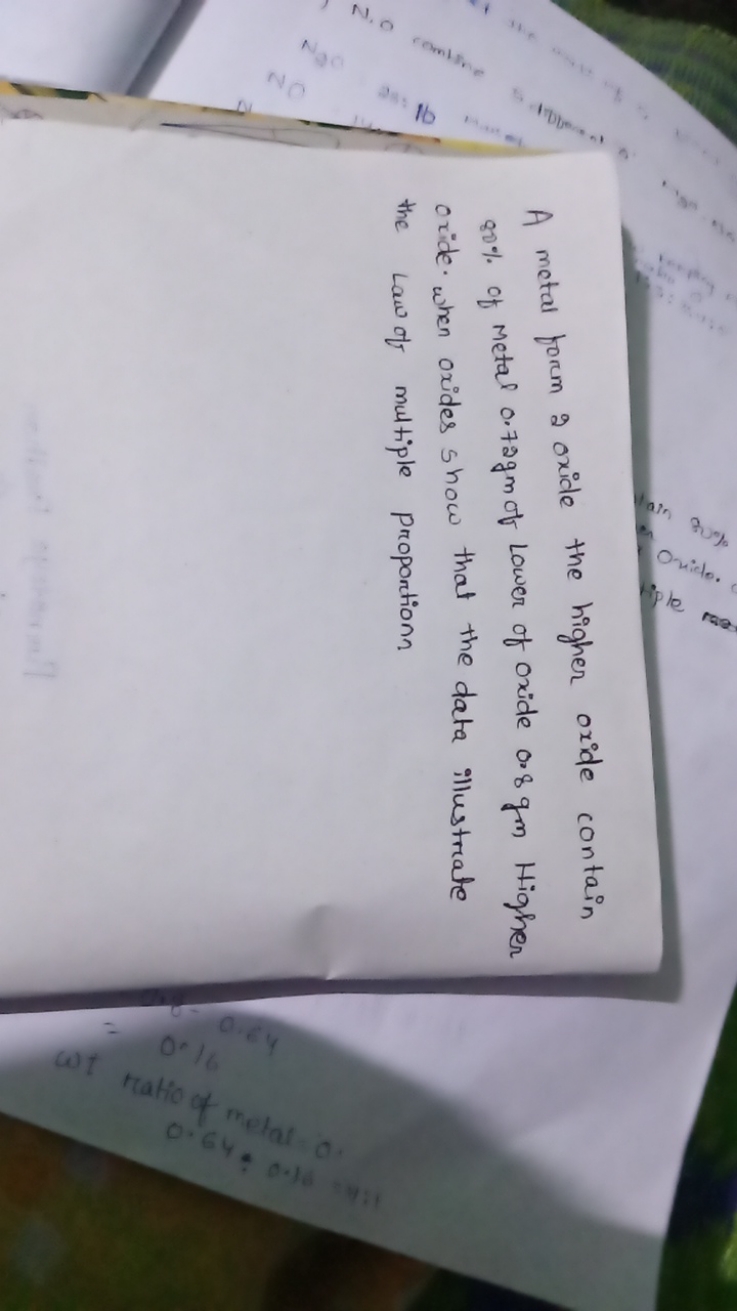 A metal form 2 oxide the higher oxide contain
80% of Metal 0.72gm of Lower of oxide 0.8 gm Higher
oxide. when oxides show that the data illustrate
the Law of multiple proportionn
N2O combine
N2O
NO
tain 80%
Oxide.
tiple
0.64
= 0.16
wt ratio of metal = 0.
0.64 : 0.16 = 4:1